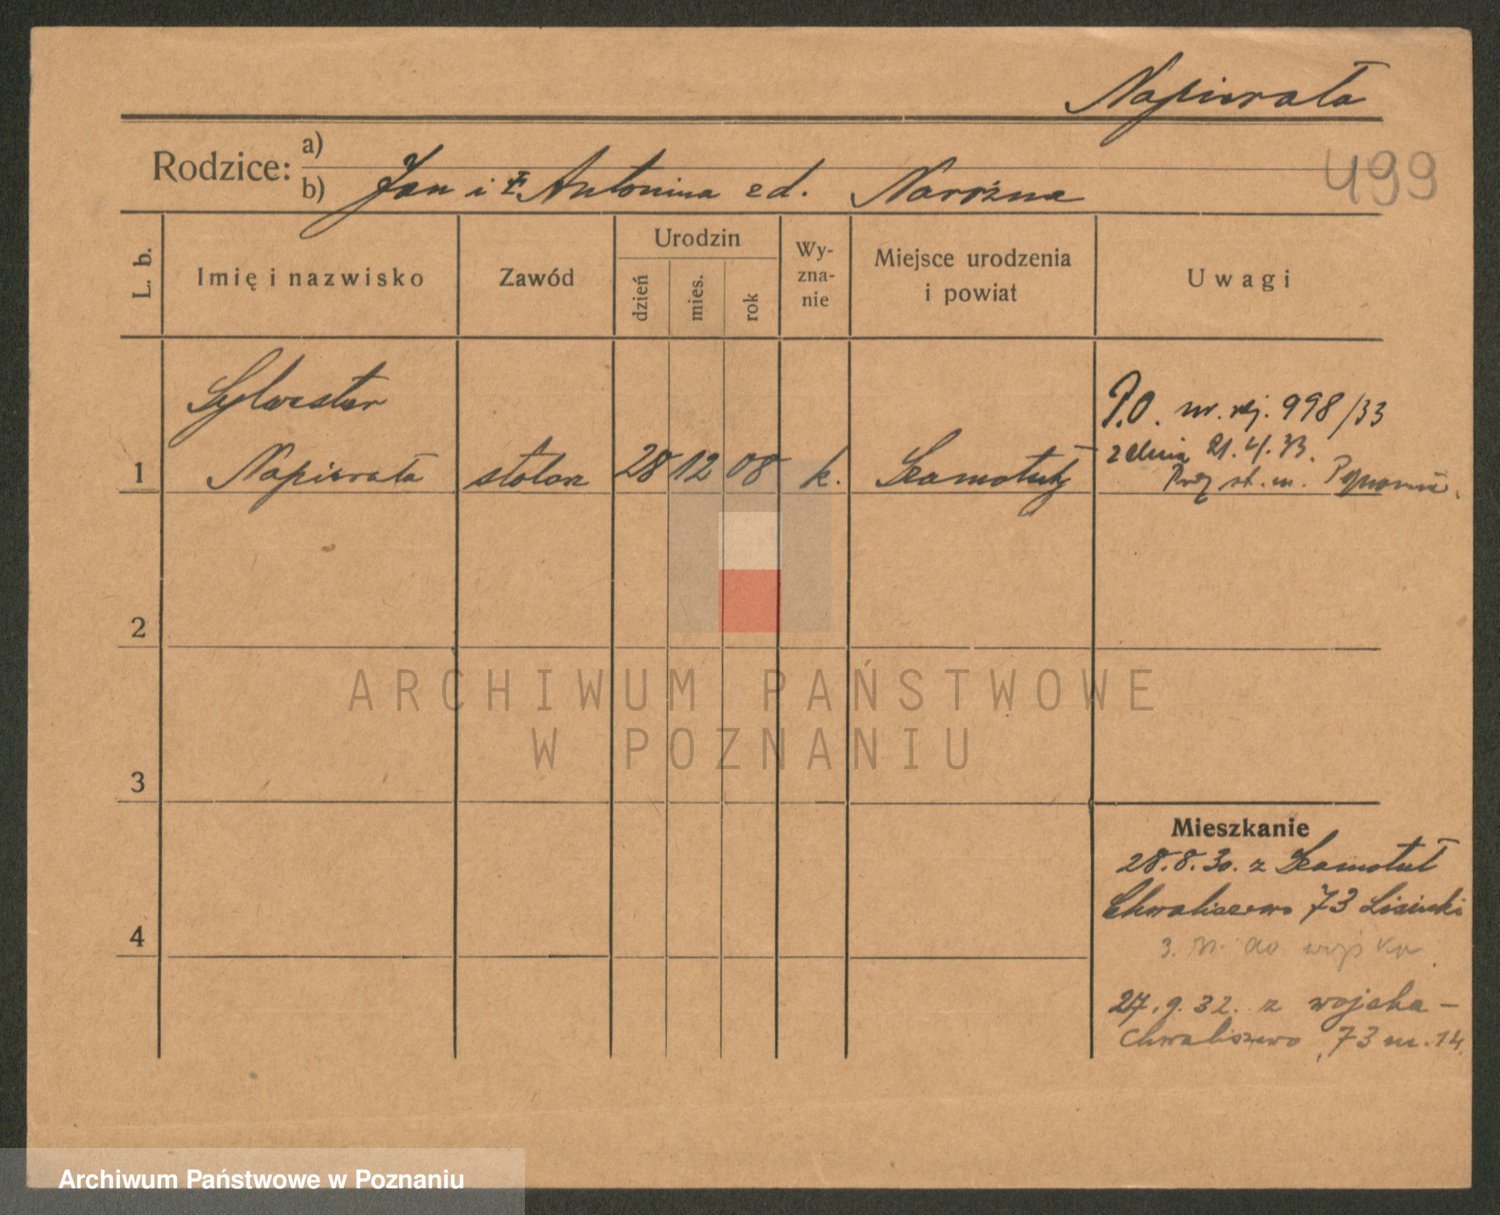 Napierała
499
Rodzice:
a)
b) Jan i Antonina zd. Narożna
L. b.
Imię i nazwisko
Zawód
Urodzin
dzień
mies.
rok
Wy-
zna-
nie
Miejsce urodzenia
i powiat
Uwagi
Sylwester
1 Napierała stolarz 28 12 08 k. Szamotuły
P.O. nr. rej. 998/33
z dnia 21.4.33.
Prez. st. m. Poznania.
2
3
4
Mieszkanie
28.8.30. z Szamotuł
Chwaliszewo 73 Lisiecki
do wojska
27.9.32. z wojska –
Chwaliszewo, 73 m. 14.
ARCHIWUM PAŃSTWOWE
W POZNANIU
Archiwum Państwowe w Poznaniu